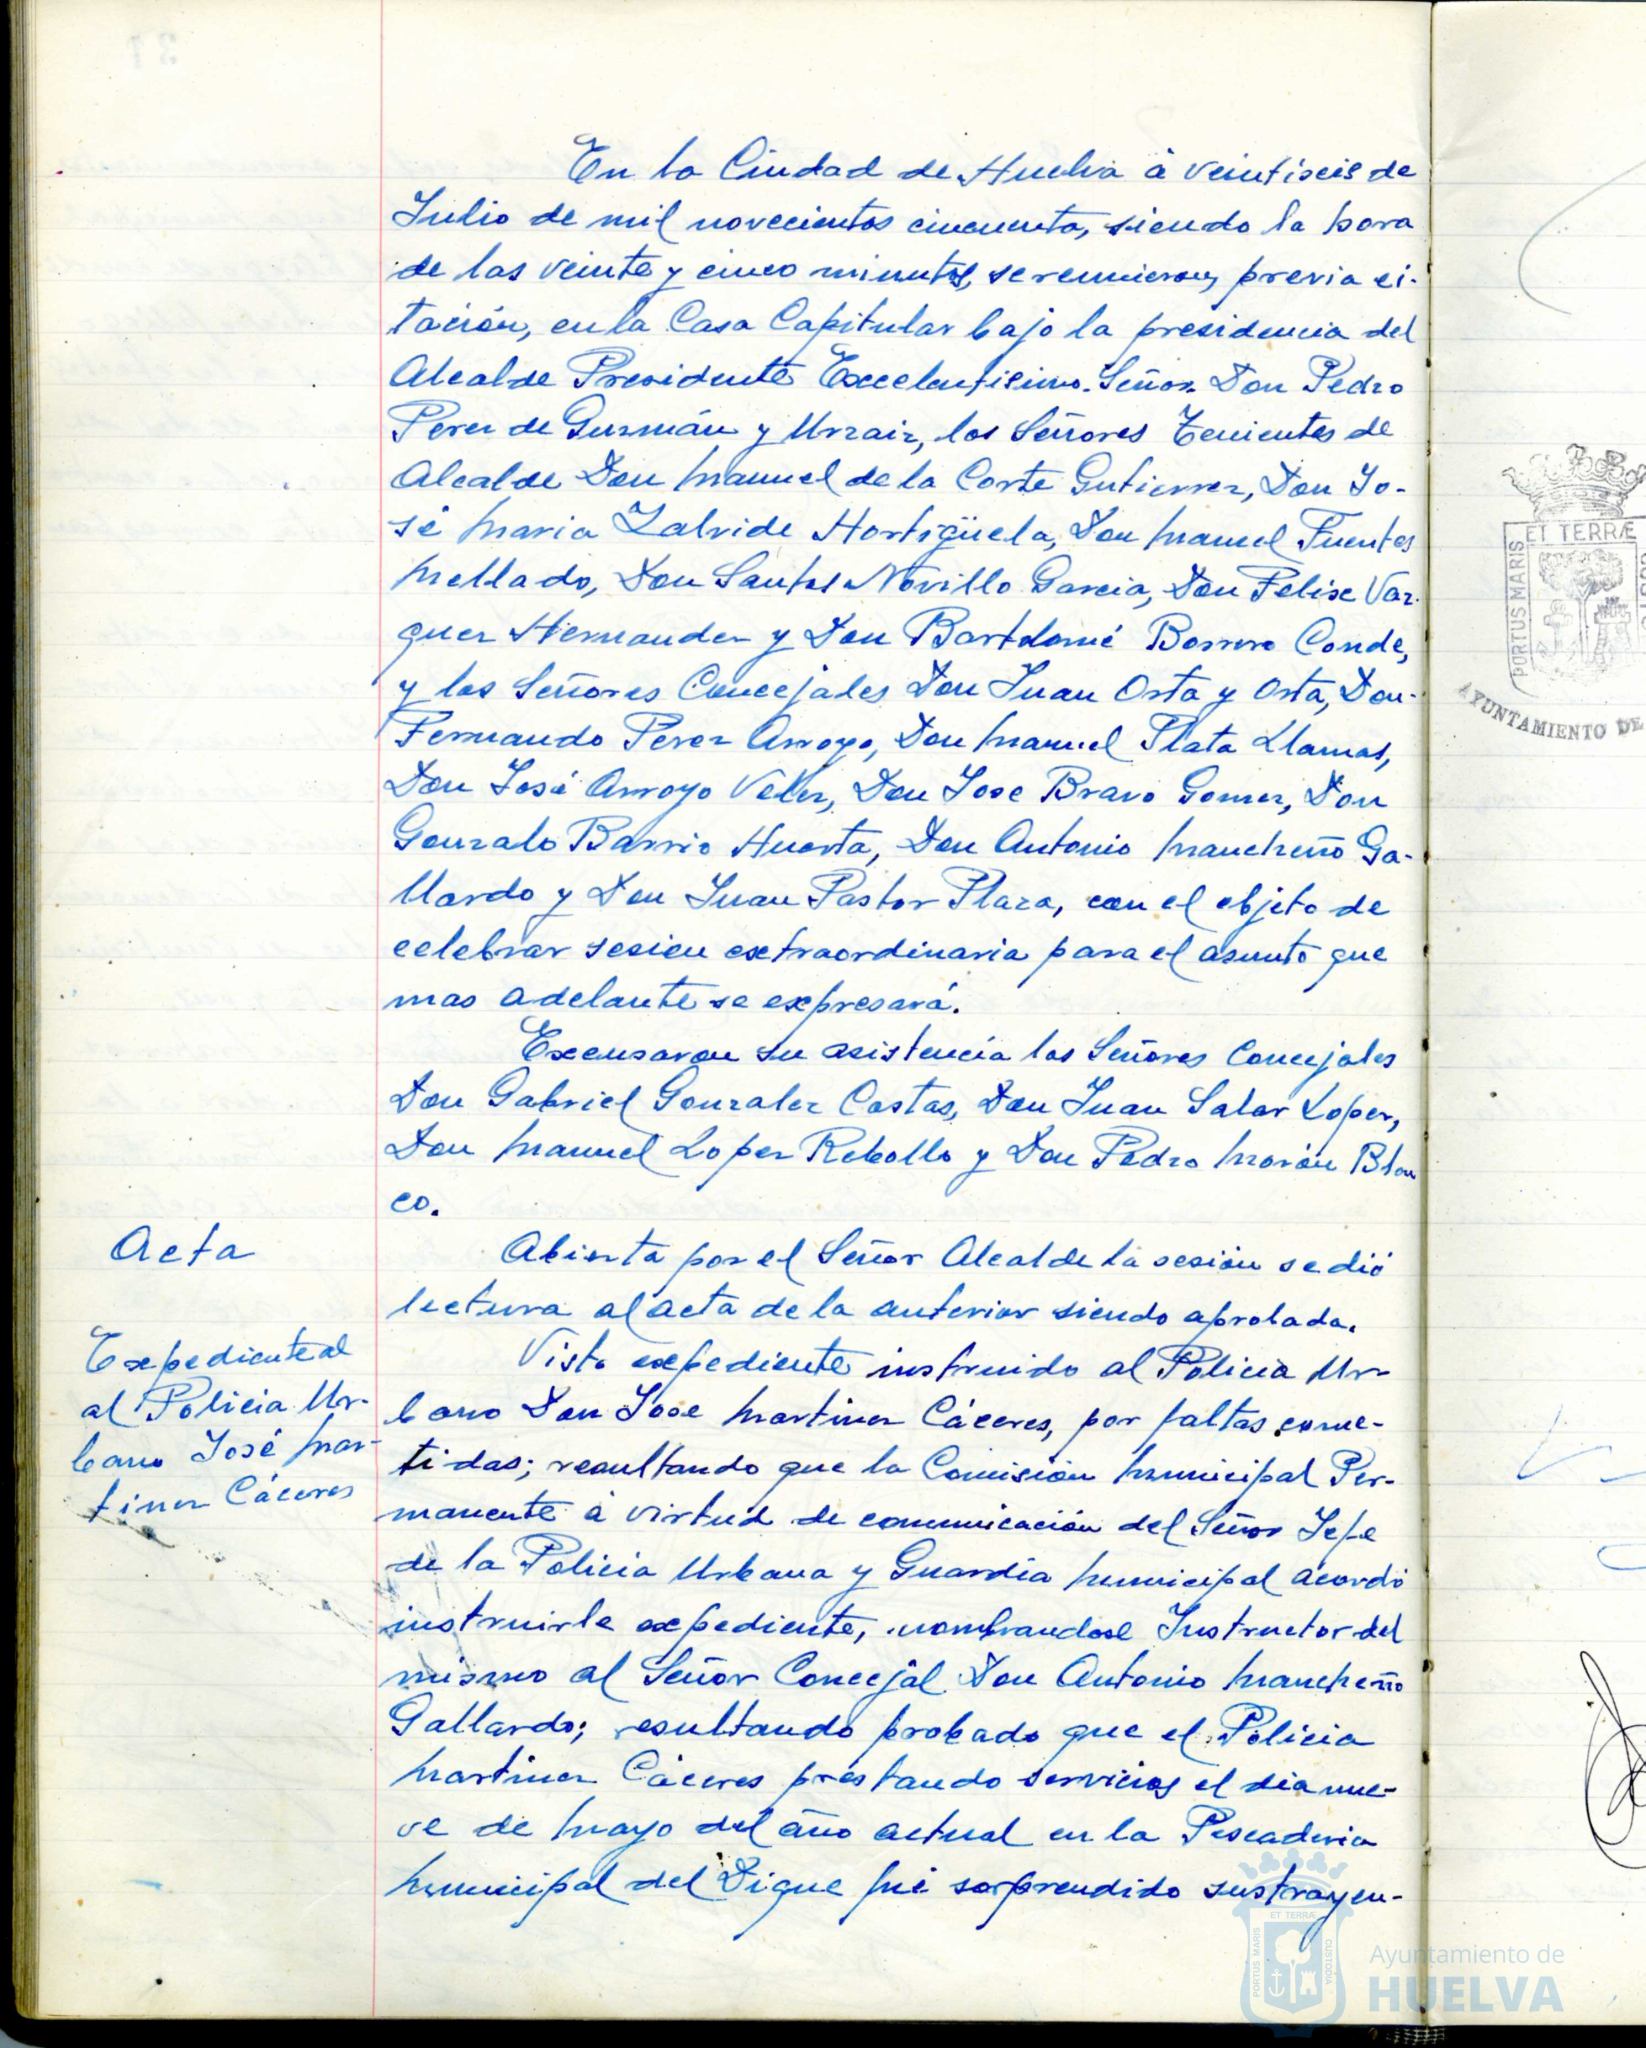 En la Ciudad de Huelva á veintiseis de
Julio de mil novecientos cincuenta, siendo la hora
de las veinte y cinco minutos, se reunieron, previa ci-
tación, en la Casa Capitular bajo la presidencia del
Alcalde Presidente Excelentisimo Señor Don Pedro
Perez de Guzmán y Urzaiz, los Señores Tenientes de
Alcalde Don Manuel de la Corte Gutierrez, Don Jo-
sé Maria Zalvide Hortigüela, Don Manuel Fuentes
Mellado, Don Santos Novillo Garcia, Don Felix Vaz-
quez Hernandez y Don Bartolomé Borrero Conde,
y los Señores Concejales Don Juan Orta y Orta, Don
Fernando Perez Arroyo, Don Manuel Plata Llamas,
Don José Arroyo Velez, Don Jose Bravo Gomez, Don
Gonzalo Barrio Huerta, Don Antonio Mancheño Ga-
llardo y Don Juan Pastor Plaza, con el objeto de
celebrar sesion extraordinaria para el asunto que
mas adelante se expresará.
Excusaron su asistencia los Señores Concejales
Don Gabriel Gonzalez Costas, Don Juan Salar Lopez,
Don Manuel Lopez Rebollo y Don Pedro Morón Blan
co.
Acta
Abierta por el Señor Alcalde la sesión se dió
lectura al acta de la anterior siendo aprobada.
Expediente al
al Policia Ur-
bano José Mar-
tinez Cáceres
Visto expediente instruido al Policia Ur-
bano Don Jose Martinez Cáceres, por faltas come-
tidas; resultando que la Comisión Municipal Per-
manente á virtud de comunicación del Señor Jefe
de la Policia Urbana y Guardia Municipal acordó
instruirle expediente, nombrandose Instructor del
mismo al Señor Concejal Don Antonio Mancheño
Gallardo; resultando probado que el Policia
Martinez Cáceres prestando servicios el dia nue-
ve de Mayo del año actual en la Pescaderia
Municipal del Dique fué sorprendido sustrayen-
ET TERRÆ
PORTUS MARIS
AYUNTAMIENTO DE
PORTUS MARIS
ET TERRÆ
CUSTODIA
Ayuntamiento de
HUELVA